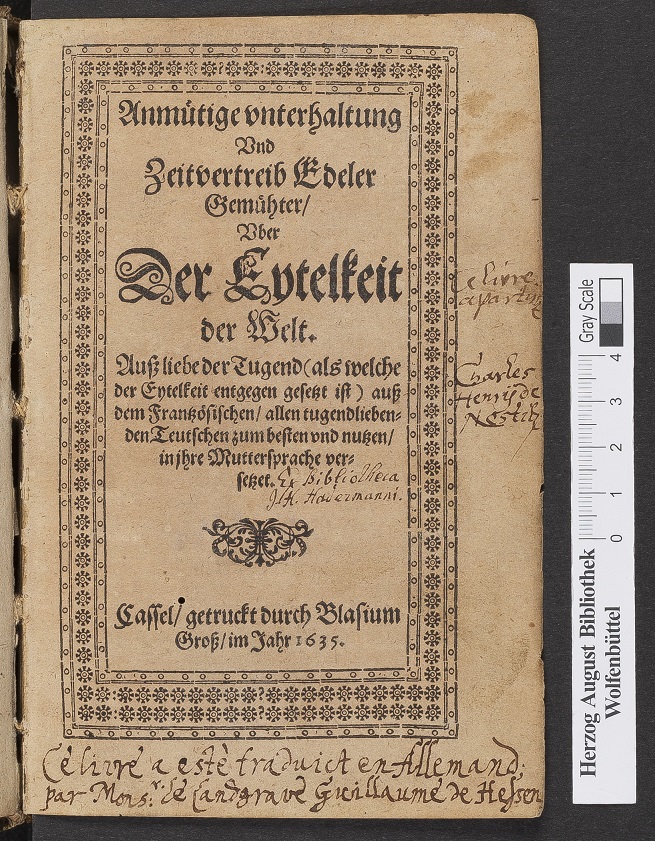 Anmütige vnterhaltung
Vnd
Zeitvertreib Edeler
Gemühter/
Vber
Der Eytelkeit
der Welt.
Auß liebe der Tugend (als welche
der Eytelkeit entgegen gesetzt ist) auß
dem Frantzösischen/ allen tugendlieben-
den Teutschen zum besten vnd nutzen/
in jhre Muttersprache ver-
setzet.
Ex Bibliotheca
J.H. Havermanni.
Cassel/ getruckt durch Blasium
Groß/ im Jahr 1635.
Ce livre
apartient
Charles
Henrij de
Nostitz
Cè livre a estè traduict en Allemand,
par Mons.r lè Landgravè Guillaumè de Hessen
Herzog August Bibliothek
Wolfenbüttel
0 1 2 3 4
Gray Scale